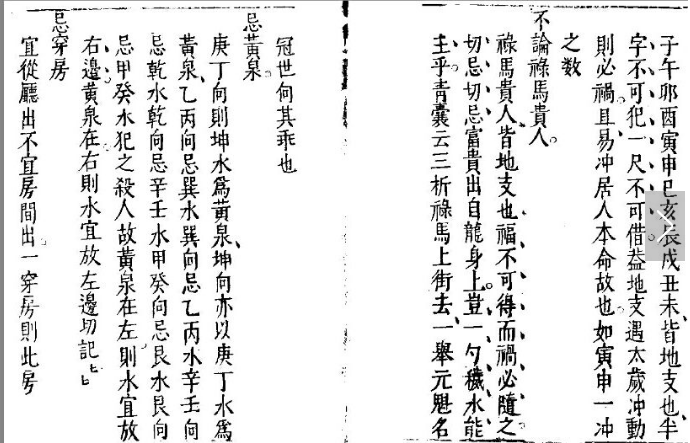 子午卯酉寅申巳亥辰戌丑未皆地支也半
字不可犯一尺不可借葢地支遇太歲冲動
則必禍且易冲居人本命故也如寅申一冲
之数
不論祿馬貴人
祿馬貴人皆地支也福不可得而禍必隨之
切忌切忌富貴出自龍身上豈一勺穢水能
主乎青囊云三折祿馬上街去一舉元魁名
冠世何其乖也
忌黃泉
庚丁向則坤水爲黃泉坤向亦以庚丁水爲
黃泉乙丙向忌巽水巽向忌乙丙水辛壬向
忌乾水乾向忌辛壬水甲癸向忌艮水艮向
忌甲癸水犯之殺人故黃泉在左則水宜放
右邊黃泉在右則水宜放左邊切記
忌穿房
宜從廳出不宜房間出一穿房則此房